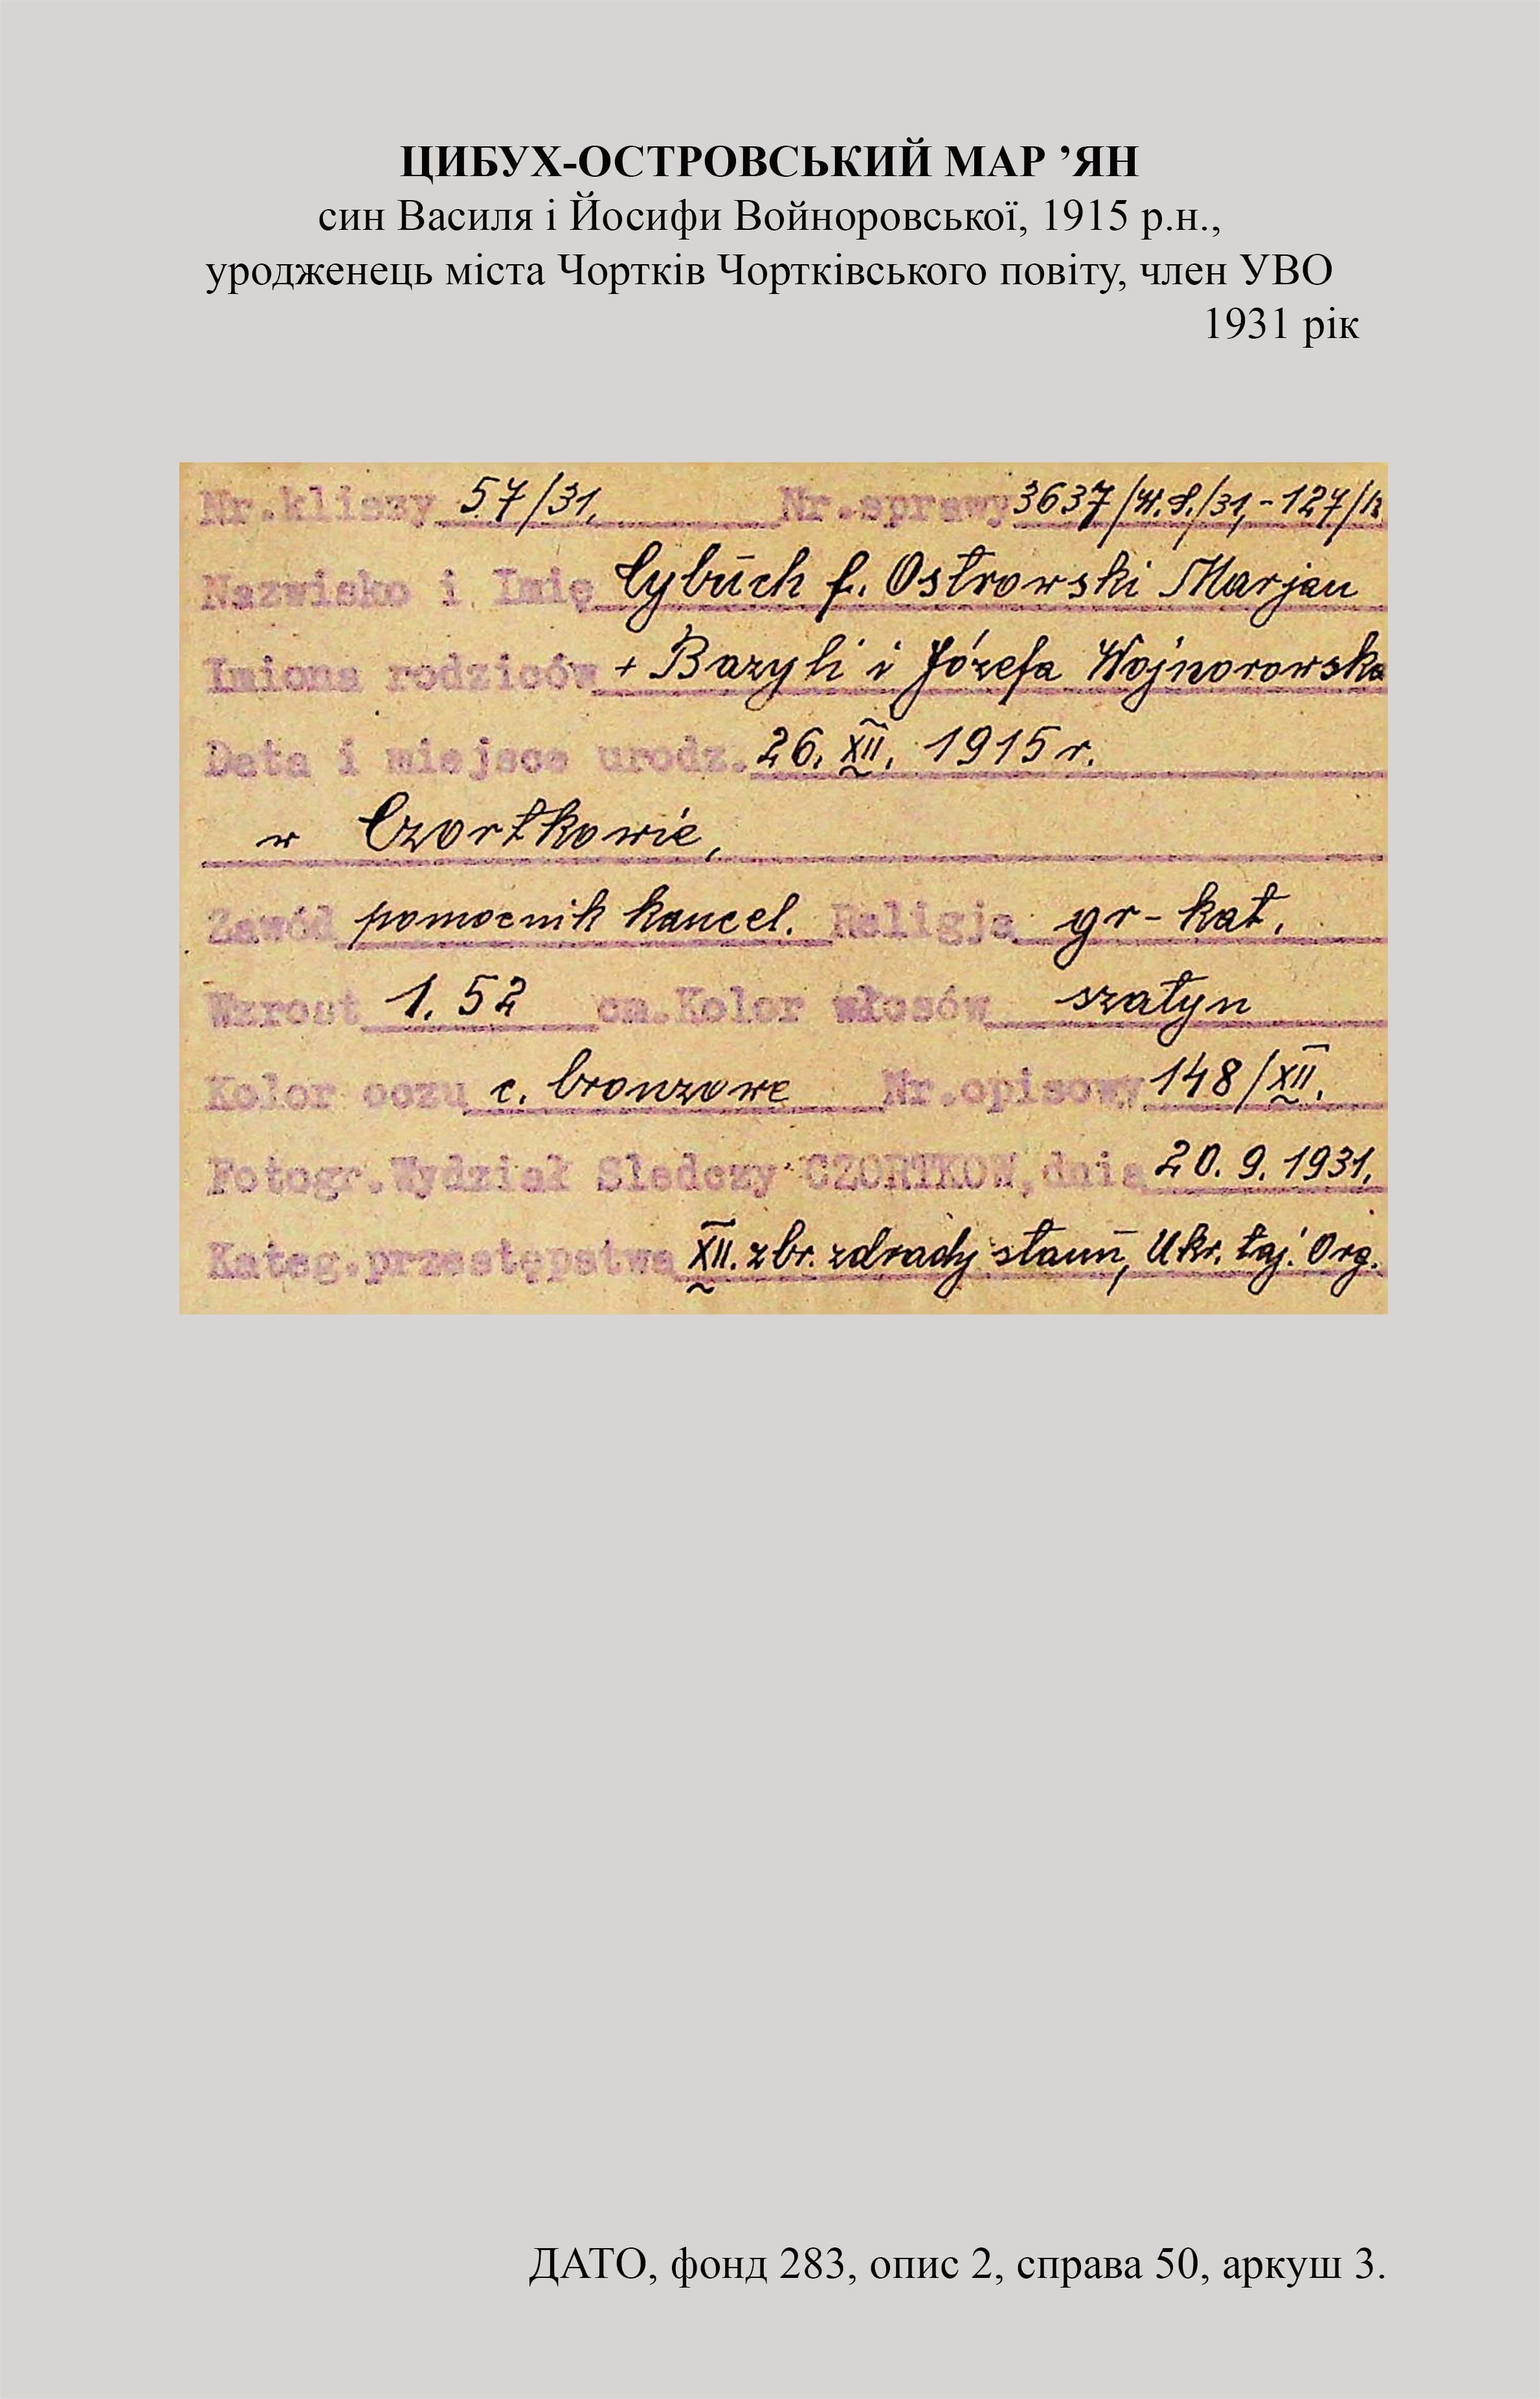 ЦИБУХ-ОСТРОВСЬКИЙ МАР ’ЯН
син Василя і Йосифи Войноровської, 1915 р.н.,
уродженець міста Чортків Чортківського повіту, член УВО
1931 рік
Nr.kliszy 57/31, Nr.sprawy 3637/W.S./31,-127/
Nazwisko i Imię Cybuch f. Ostrowski Marjan
Imiona rodziców + Bazyli i Józefa Wojnorowska
Data i miejsce urodz. 26. XII. 1915 r.
w Czortkowie,
Zawód pomocnik kancel. Religja gr-kat.
Wzrost 1.52 cm. Kolor włosów szatyn
Kolor oczu c. bronzowe Nr.opisowy 148/XII.
Fotogr.Wydział Sledczy CZORTKOW, dnia 20. 9. 1931,
Kateg.przestępstwa XII. zbr. zdrady stanu, Ukr. taj. Org.
ДАТО, фонд 283, опис 2, справа 50, аркуш 3.